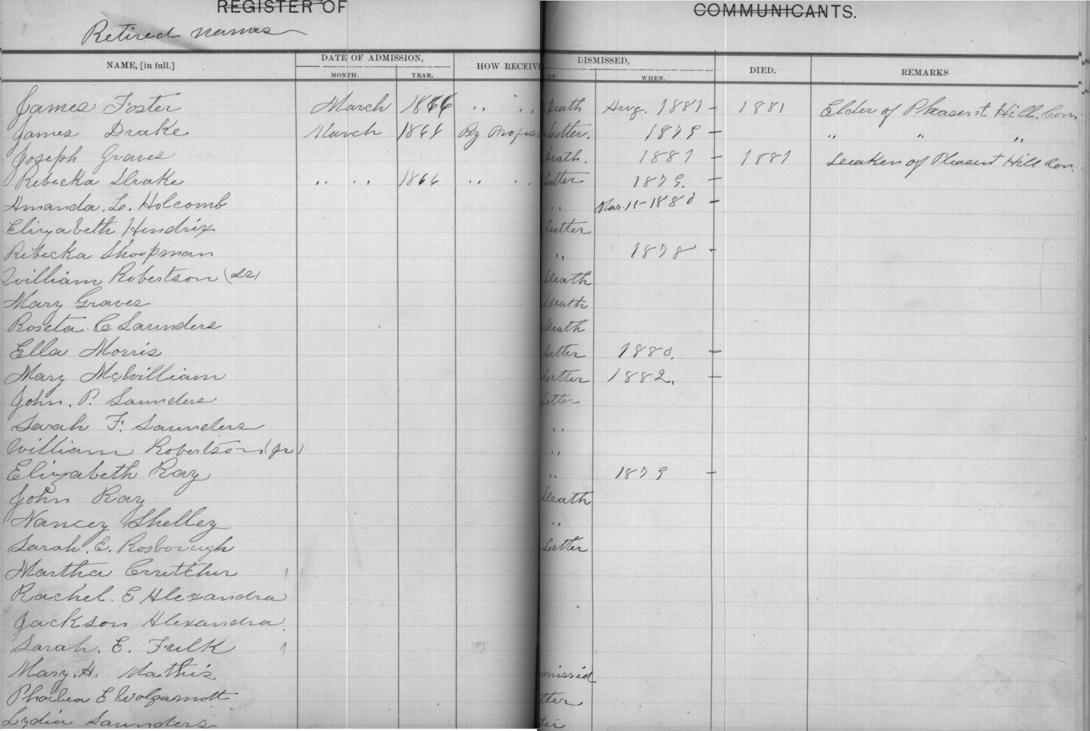 REGISTER OF COMMUNICANTS.
Retired names
NAME, [in full.] DATE OF ADMISSION, MONTH. YEAR. HOW RECEIV DISMISSED, WHEN. DIED. REMARKS
James Foster March 1866 " " Death Aug. 1881 - 1881 Elder of Pleasent Hill. Con.
James Drake March 1868 By Profes Letter. 1879 - " " "
Joseph Graves Death. 1881 - 1881 Deaken of Pleasent Hill Con.
Rebecka Drake " " 1866 " " Letter 1879. -
Amanda. L. Holcomb " Mar. 11-1880 -
Elizabeth Hendrix Letter
Rebecka Shoopman " 1878 -
William Robertson (Sr) Death
Mary Graves Death
Roseta C Saunders Death
Ella Morris Letter 1880. -
Mary McWilliam Letter 1882. -
John. P. Saunders Letter
Sarah F. Saunders "
William Robertson (jr) "
Elizabeth Ray " 1879 -
John Ray Death
Nancey Shelley "
Sarah. E. Rosborough Letter
Martha Crutcher
Rachel. E Alexandra
Jackson Alexandra.
Sarah. E. Fulk
Mary. H. Mathis missid
Phoebea E Wolgamott tter
Lydia Saunders